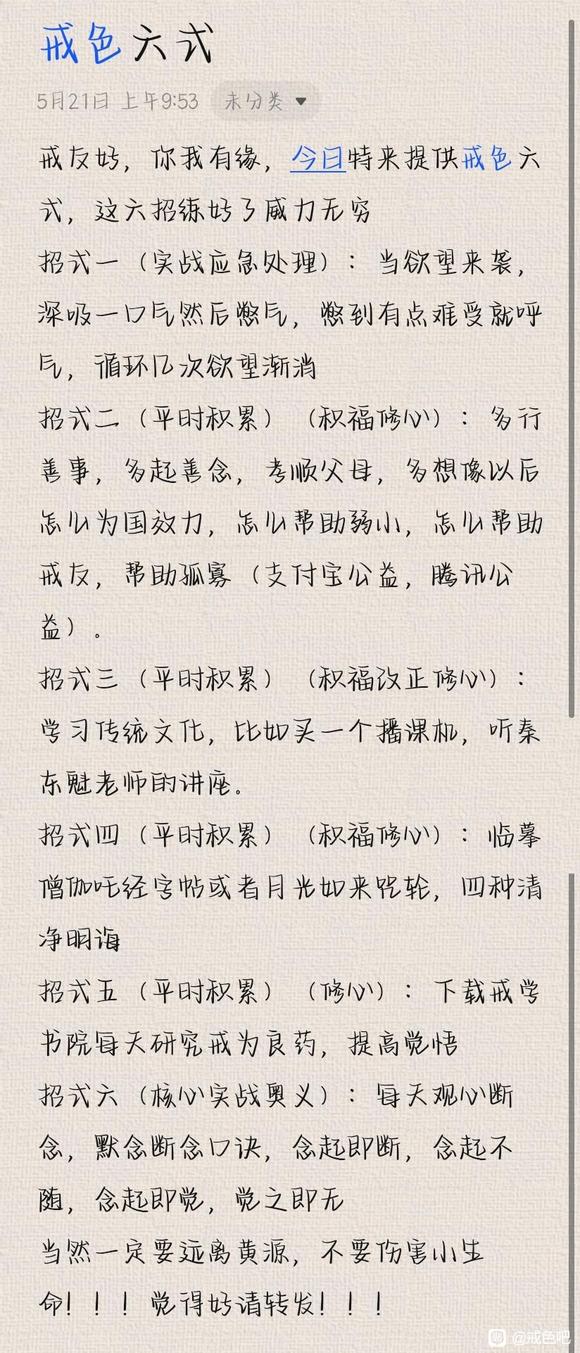 戒色六式
5月21日 上午9:53 未分类
戒友好，你我有缘，今日特来提供戒色六
式，这六招练好了威力无穷
招式一（实战应急处理）：当欲望来袭，
深吸一口气然后憋气，憋到有点难受就呼
气，循环几次欲望渐消
招式二（平时积累）（积福修心）：多行
善事，多起善念，孝顺父母，多想像以后
怎么为国效力，怎么帮助弱小，怎么帮助
戒友，帮助孤寡（支付宝公益，腾讯公
益）。
招式三（平时积累）（积福改正修心）：
学习传统文化，比如买一个播课机，听秦
东魁老师的讲座。
招式四（平时积累）（积福修心）：临摹
僧伽吒经字帖或者月光如来咒轮，四种清
净明诲
招式五（平时积累）（修心）：下载戒学
书院每天研究戒为良药，提高觉悟
招式六（核心实战奥义）：每天观心断
念，默念断念口诀，念起即断，念起不
随，念起即觉，觉之即无
当然一定要远离黄源，不要伤害小生
命！！！觉得好请转发！！！
@戒色吧